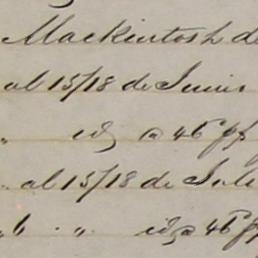 Mackintosh de
al 15/18 de Junio
" id @ 46 pf
" al 15/18 de Juli
"6 . " id @ 46 pf